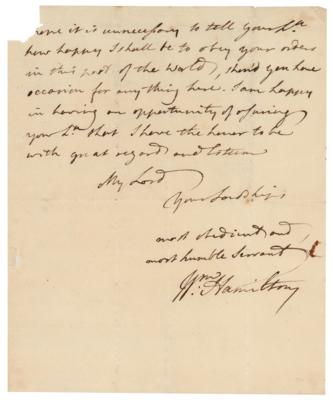 hope it is unnecessary to tell your Lp.
how happy I shall be to obey your orders
in this part of the World, should you have
occasion for anything here. I am happy
in having an opportunity of assuring
your Lp. that I have the honor to be
with great regard and Esteem
My Lord
Your Lordship's
most obedient and
most humble Servant
Wm: Hamilton